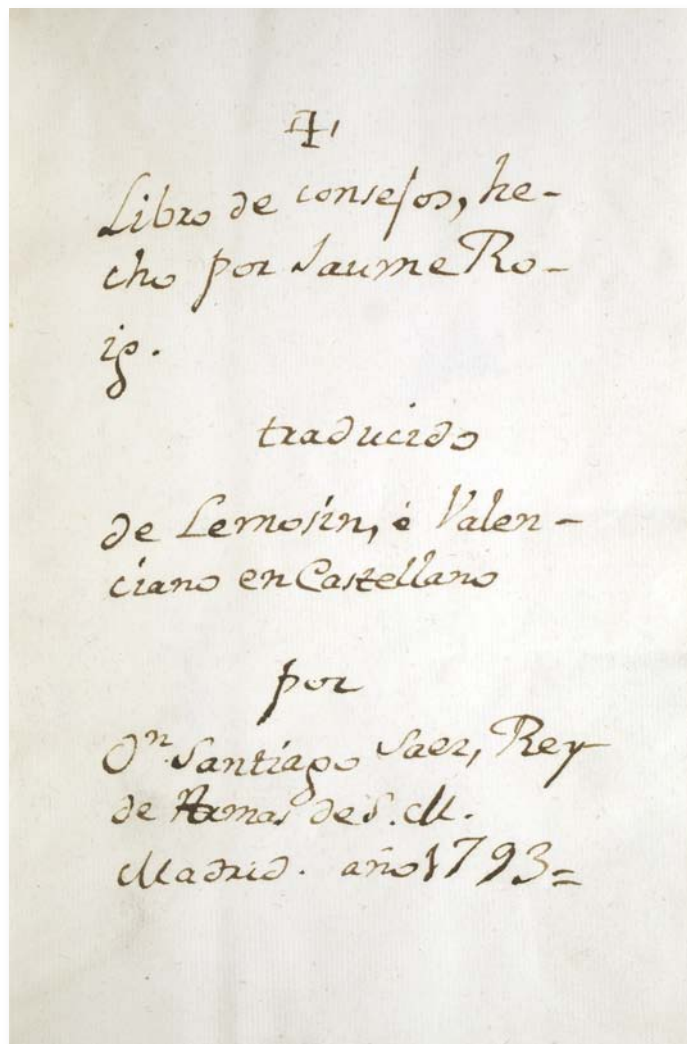 Libro de consejos, he-
cho por Jaume Ro-
ig.
traducido
de Lemosin, é Valen-
ciano en Castellano
por
Dn. Santiago Saez, Rey
de Armas de S. M.
Madrid. año 1793=